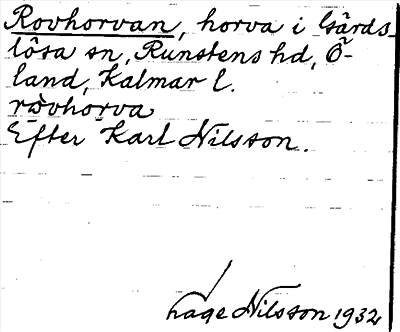 Rovhorvan, horva i Gärds-
lösa sn, Runstens hd, Ö-
land, Kalmar l.
rövhorva
Efter Karl Nilsson.
Nilsson 1932